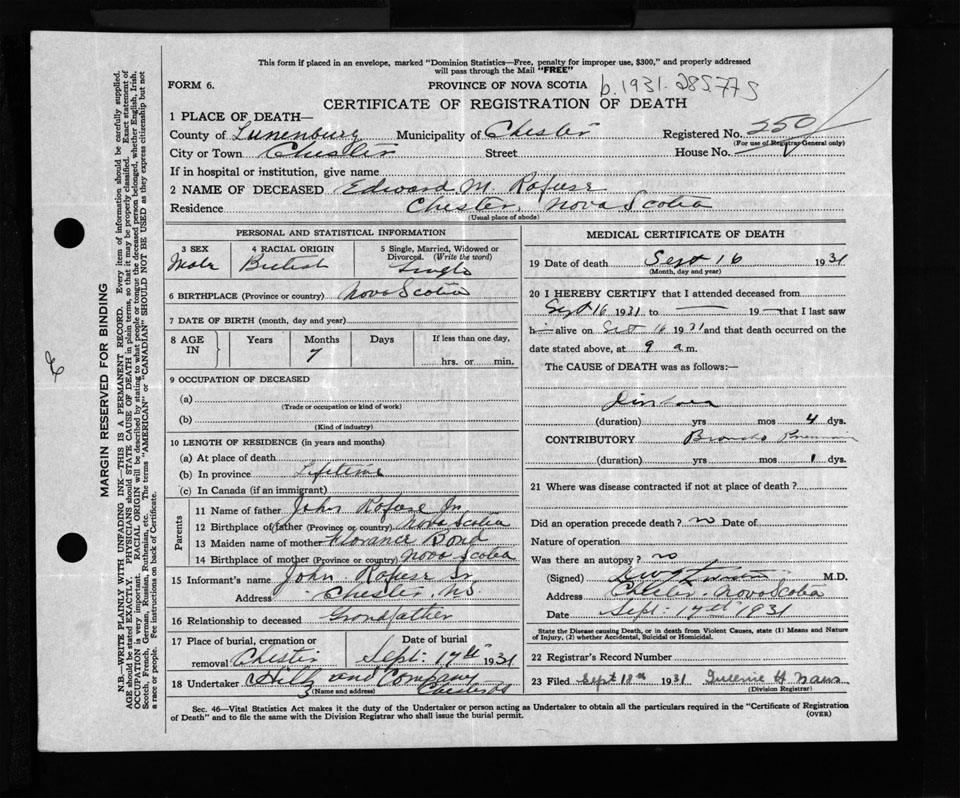 This form if placed in an envelope, marked "Dominion Statistics—Free, penalty for improper use, $300," and properly addressed
will pass through the Mail "FREE"
FORM 6.
PROVINCE OF NOVA SCOTIA
b.1931.285775
CERTIFICATE OF REGISTRATION OF DEATH
1 PLACE OF DEATH—
County of Lunenburg Municipality of Chester Registered No. 250
(For use of Registrar General only)
City or Town Chester Street House No.
If in hospital or institution, give name
2 NAME OF DECEASED Edward M. Rafuse
Residence Chester, Nova Scotia
(Usual place of abode)
PERSONAL AND STATISTICAL INFORMATION
3 SEX
Male
4 RACIAL ORIGIN
British
5 Single, Married, Widowed or
Divorced. (Write the word)
Single
6 BIRTHPLACE (Province or country) Nova Scotia
7 DATE OF BIRTH (month, day and year)
8 AGE IN
Years
Months
7
Days
If less than one day,
hrs. or min.
9 OCCUPATION OF DECEASED
(a)
(Trade or occupation or kind of work)
(b)
(Kind of industry)
10 LENGTH OF RESIDENCE (in years and months)
(a) At place of death
(b) In province Lifetime
(c) In Canada (if an immigrant)
Parents
11 Name of father John Rafuse Jr
12 Birthplace of father (Province or country) Nova Scotia
13 Maiden name of mother Florance Bond
14 Birthplace of mother (Province or country) Nova Scotia
15 Informant's name John Rafuse Sr
Address Chester, NS.
16 Relationship to deceased Grandfather
17 Place of burial, cremation or
removal Chester
Date of burial
Sept. 17th 1931
18 Undertaker Hiltz and Company
(Name and address) Chester NS
MEDICAL CERTIFICATE OF DEATH
19 Date of death Sept 16 1931
(Month, day and year)
20 I HEREBY CERTIFY that I attended deceased from
Sept 16 1931 to — 19 — that I last saw
h— alive on Sept 16 1931 and that death occurred on
date stated above, at 9 a m.
The CAUSE of DEATH was as follows:—
(duration) yrs mos 4 dys.
CONTRIBUTORY Broncho Pneumonia
(duration) yrs mos 1 dys.
21 Where was disease contracted if not at place of death?
Did an operation precede death? no Date of
Nature of operation
Was there an autopsy? no
(Signed) M.D.
Address Chester Nova Scotia
Date Sept. 17th 1931
State the Disease causing Death, or in death from Violent Causes, state (1) Means and Nature
of Injury, (2) whether Accidental, Suicidal or Homicidal.
22 Registrar's Record Number
23 Filed Sept 18th 1931
(Division Registrar)
Sec. 46—Vital Statistics Act makes it the duty of the Undertaker or person acting as Undertaker to obtain all the particulars required in the "Certificate of Registration
of Death" and to file the same with the Division Registrar who shall issue the burial permit.
(OVER)
MARGIN RESERVED FOR BINDING
N.B.—WRITE PLAINLY WITH UNFADING INK—THIS IS A PERMANENT RECORD. Every item of information should be carefully supplied.
AGE should be stated EXACTLY. PHYSICIANS should STATE CAUSE OF DEATH in plain terms, so that it may be properly classified. Exact statement of
OCCUPATION is very important. RACIAL ORIGIN will be described by stating to what people or tongue the deceased person belonged, whether English, Irish,
Scotch, French, German, Russian, Ruthenian, etc. The terms "AMERICAN" or "CANADIAN" SHOULD NOT BE USED as they express citizenship but not
a race or people. See instructions on back of Certificate.